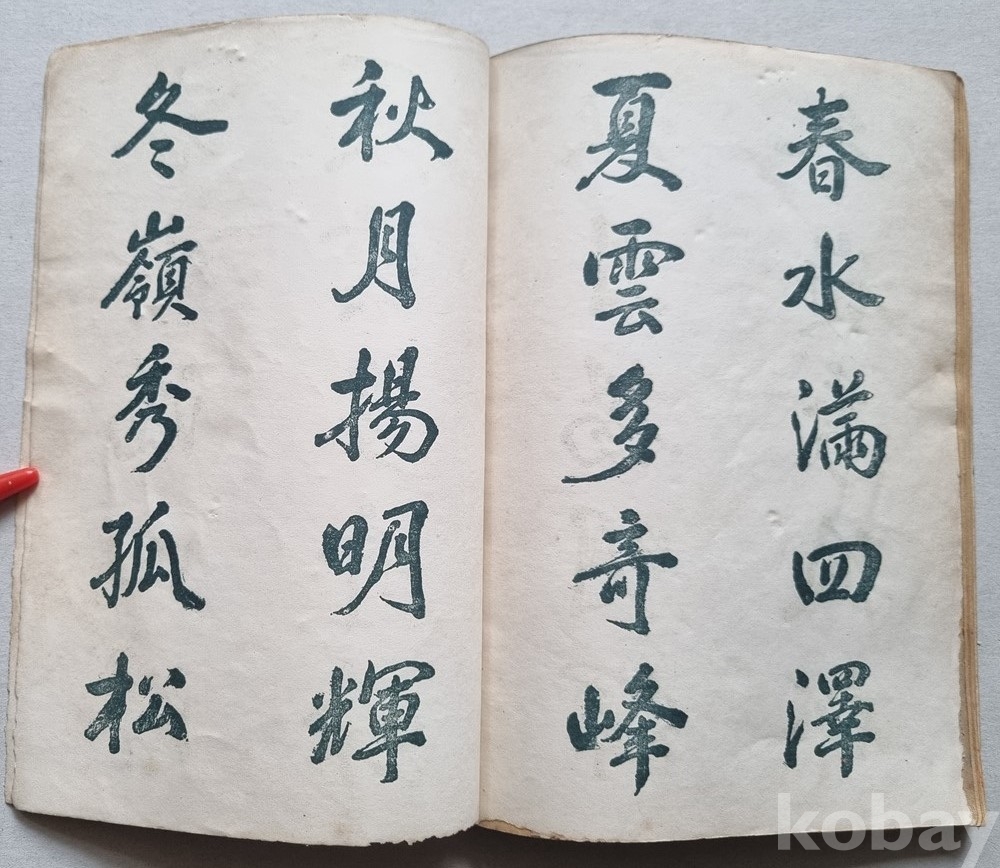 春水滿四澤
夏雲多奇峰
秋月揚明輝
冬嶺秀孤松
kobay